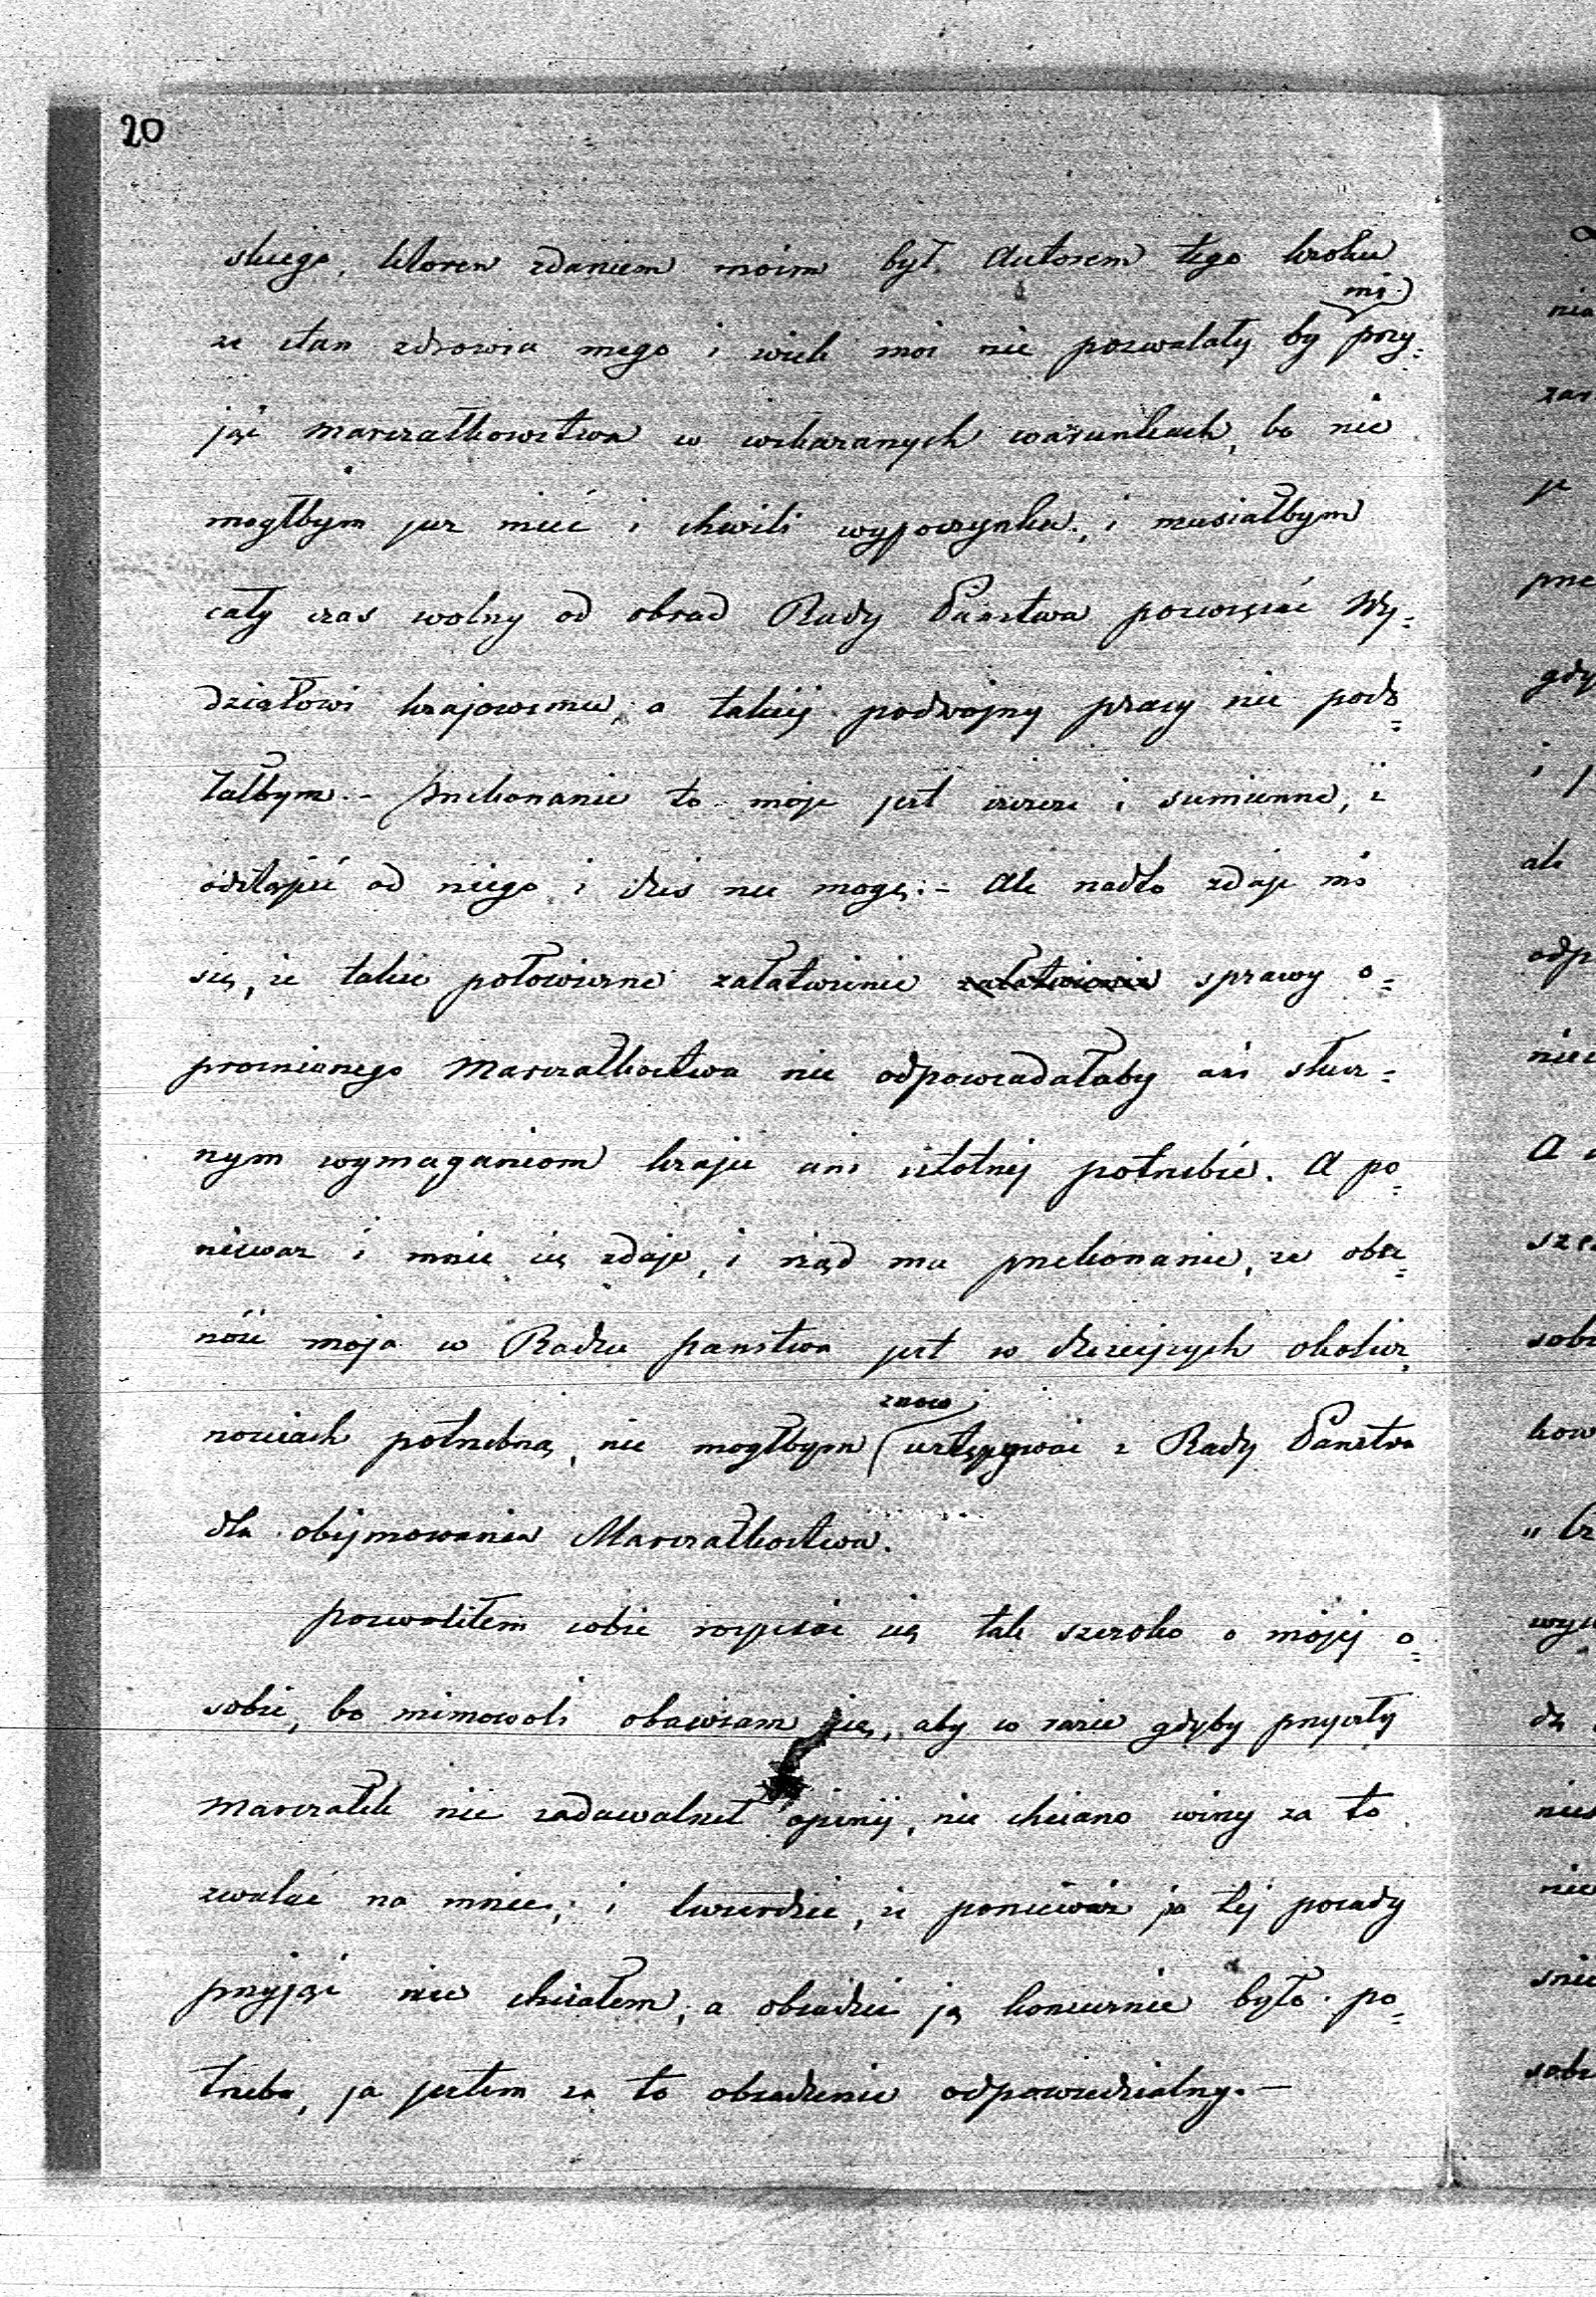 20
skiego, któren zdaniem moim był Autorem tego kroku
mi
że stan zdrowia mego i wiek mój nie pozwalały by przy=
jąć Marszałkowstwa w wskazanych warunkach, bo nie
mógłbym już mieć i chwili wypoczynku, i musiałbym
cały czas wolny od obrad Rady Państwa poświęcać Wy=
działowi krajowemu, a takiej podwójny pracy nie pods=
tałbym.- Przekonanie to moje jest szczere i sumienne, i
odstąpić od niego i dziś nie mogę.- Ale nadto zdaje mi
się, że takie połowiczne załatwienie załatwienie sprawy o=
próżnionego Marszałkostwa nie odpowiadałaby ani słusz=
nym wymaganiom kraju ani istotnej potrzebie. A po=
nieważ i mnie się zdaje, i rząd ma przekonanie, że obec=
ność moja w Radzie państwa jest w dzisiejszych okolicz=
znów
nościach potrzebną, nie mógłbym ustępywać z Rady Państwa
dla obejmowania Marszałkostwa.
pozwoliłem sobie rozpisać się tak szeroko o mojej o=
sobie, bo mimowoli obawiam się, aby w razie gdyby przyszły
Marszałek nie zadawalniał opinij, nie chciano winy za to
zwalać na mnie, i twierdzić, że ponieważ ja tej posady
przyjąć nie chciałem, a obsadzić ją koniecznie było po=
trzeba, ja jestem za to obsadzenie odpowiedzialny.-